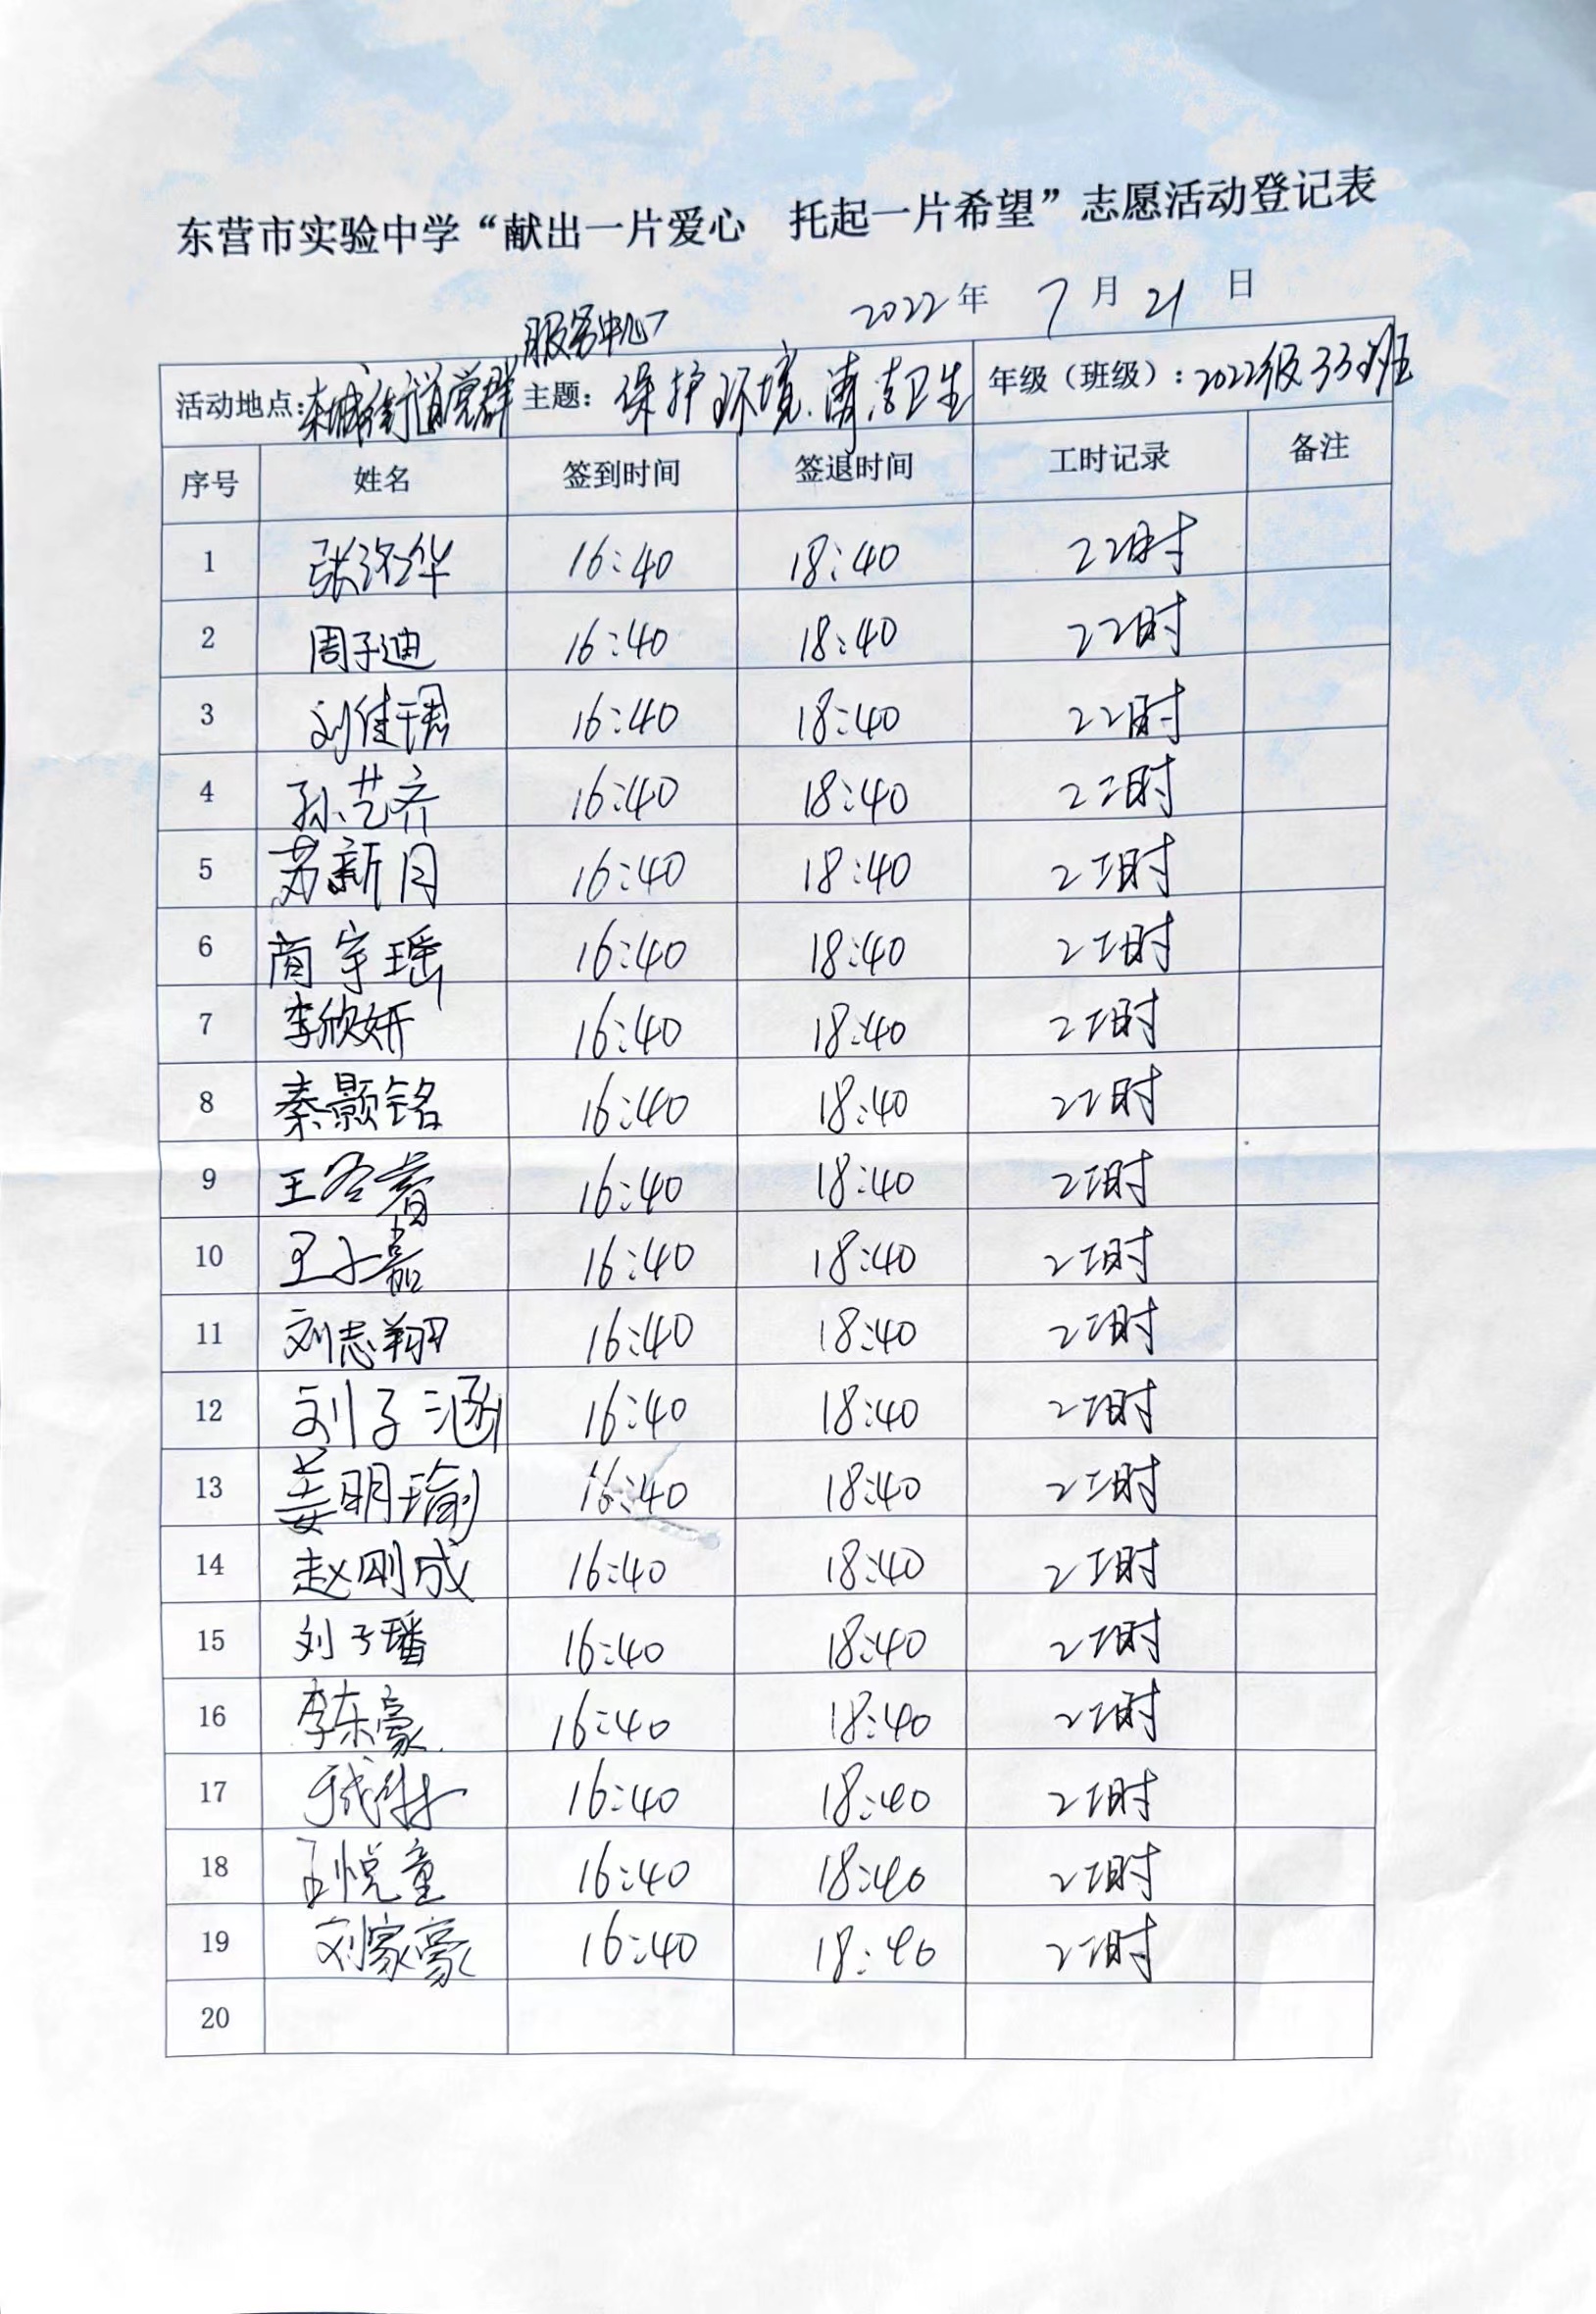 东营市实验中学“献出一片爱心 托起一片希望”志愿活动登记表
2022年 7月 21日
服务中心
活动地点: 街道党群 主题: 保护环境、清洁卫生 年级（班级）: 2022级33班
序号 姓名 签到时间 签退时间 工时记录 备注
1 张 华 16:40 18:40 2工时
2 周子迪 16:40 18:40 2工时
3 刘佳珺 16:40 18:40 2工时
4 孙艺齐 16:40 18:40 2工时
5 苏新月 16:40 18:40 2工时
6 宇瑶 16:40 18:40 2工时
7 李欣妍 16:40 18:40 2工时
8 秦颢铭 16:40 18:40 2工时
9 王 睿 16:40 18:40 2工时
10 王子嘉 16:40 18:40 2工时
11 刘志翔 16:40 18:40 2工时
12 刘子涵 16:40 18:40 2工时
13 姜明瑜 16:40 18:40 2工时
14 赵刚成 16:40 18:40 2工时
15 刘子璠 16:40 18:40 2工时
16 李东豪 16:40 18:40 2工时
17 16:40 18:40 2工时
18 悦童 16:40 18:40 2工时
19 刘家豪 16:40 18:40 2工时
20